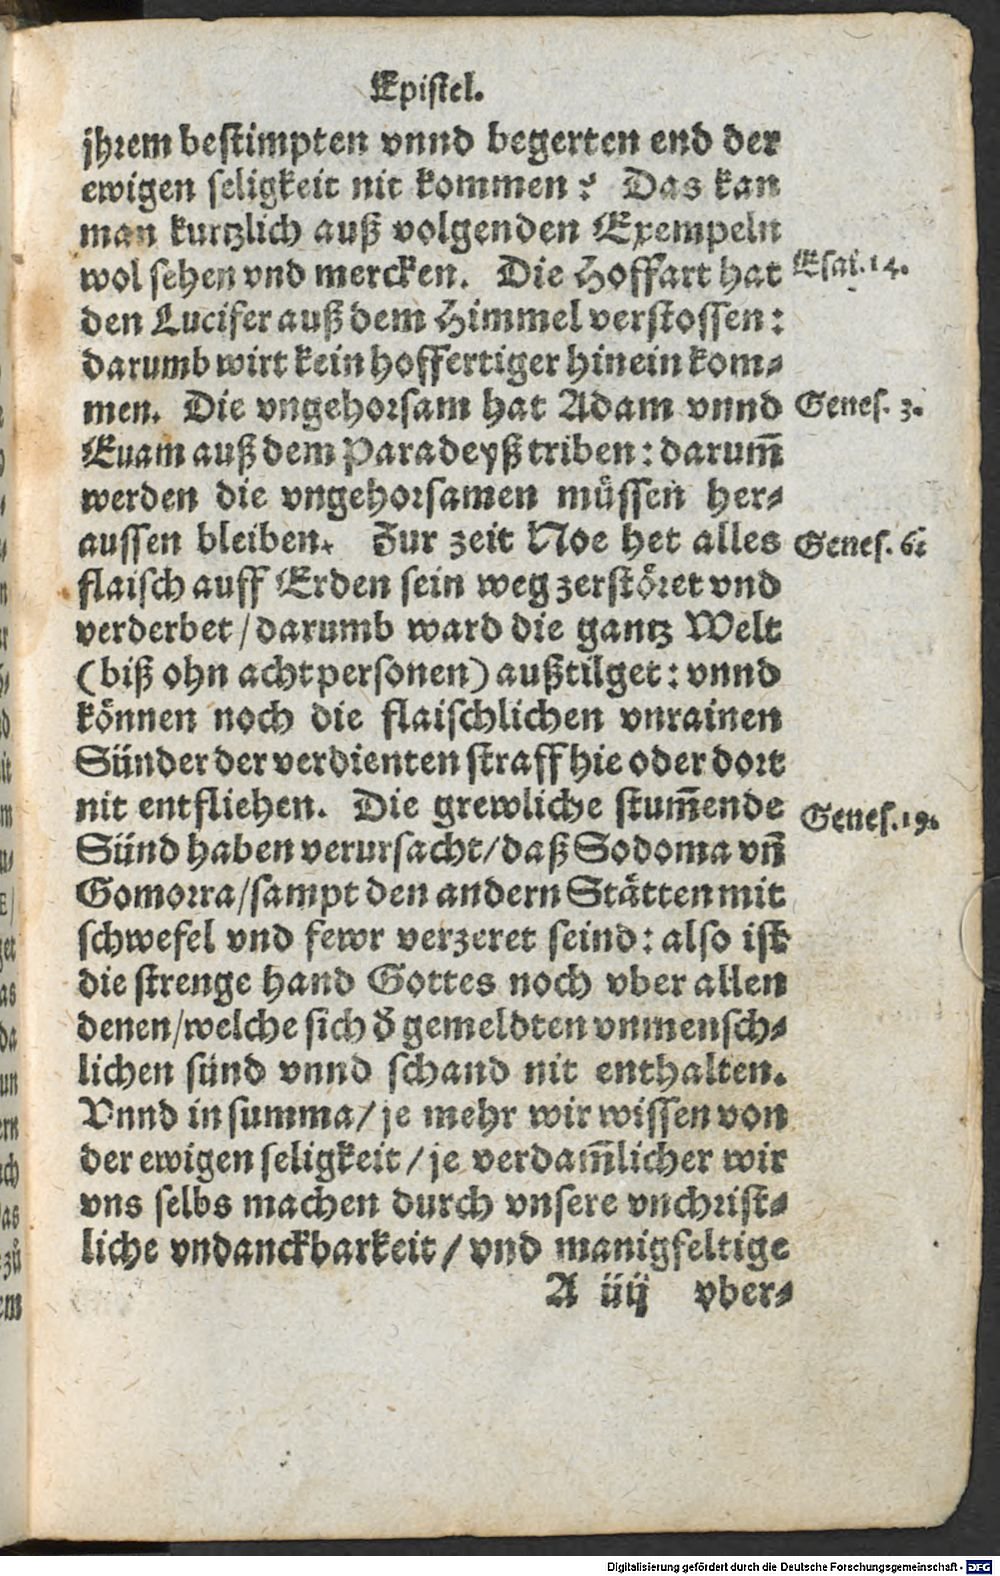 Epistel.
jhrem bestimpten vnnd begerten end der
ewigen seligkeit nit kommen? Das kan
man kurtzlich auß volgenden Exempeln
wol sehen vnd mercken. Die Hoffart hat
Esai. 14.
den Lucifer auß dem Himmel verstossen:
darumb wirt kein hoffertiger hinein kom-
men. Die vngehorsam hat Adam vnnd
Genes. 3.
Euam auß dem Paradeyß triben: darum̃
werden die vngehorsamen müssen her-
aussen bleiben. Zur zeit Noe het alles
Genes. 6.
flaisch auff Erden sein weg zerstöret vnd
verderbet/ darumb ward die gantz Welt
(biß ohn acht personen) außtilget: vnnd
können noch die flaischlichen vnrainen
Sünder der verdienten straff hie oder dort
nit entfliehen. Die grewliche stum̃ende
Genes. 19.
Sünd haben verursacht/ daß Sodoma vñ
Gomorra/ sampt den andern Stätten mit
schwefel vnd fewr verzeret seind: also ist
die strenge hand Gottes noch vber allen
denen/ welche sich d̕ gemeldten vnmensch-
lichen sünd vnnd schand nit enthalten.
Vnnd in summa/ je mehr wir wissen von
der ewigen seligkeit/ je verdam̃licher wir
vns selbs machen durch vnsere vnchrist-
liche vndanckbarkeit/ vnd manigfeltige
A iiij vber-
Digitalisierung gefördert durch die Deutsche Forschungsgemeinschaft - DFG